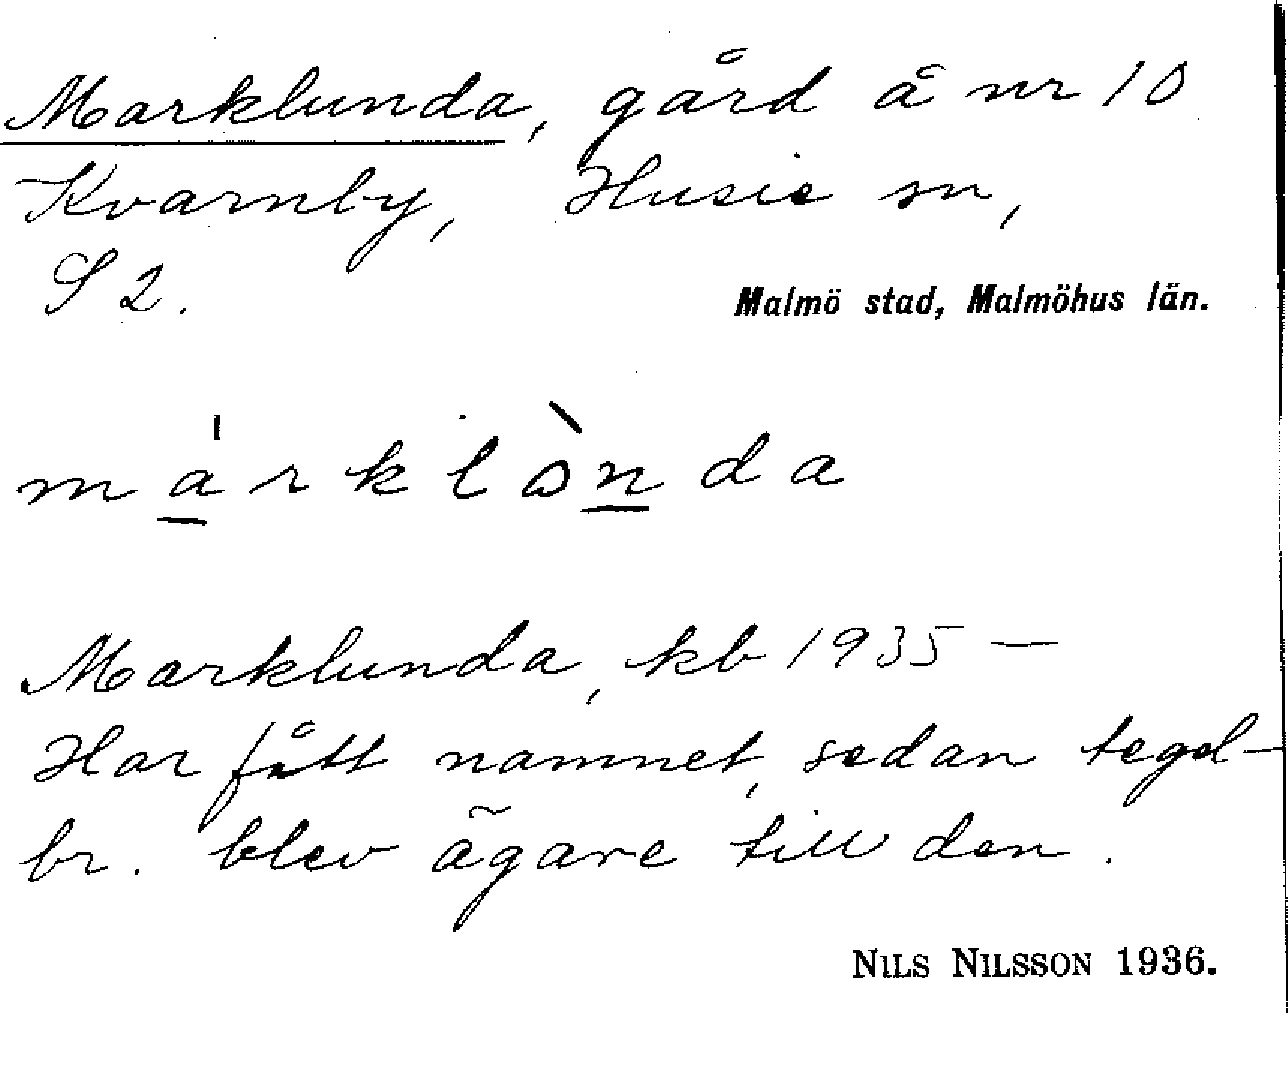 Marklunda, gård å nr 10
Kvarnby, Husie sn,
S 2.
Malmö stad, Malmöhus län.
má̱rklòṉda
Marklunda, kb 1935 —
Har fått namnet, sedan tegel-
br. blev ägare till den.
NILS NILSSON 1936.